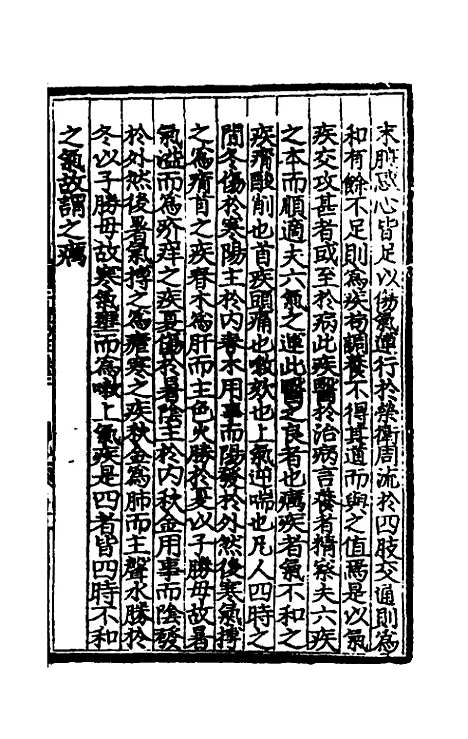 末肺惑心皆足以傷氣運行於榮衛周流於四肢交通則為
和有餘不足則為疾苟調養不得其道而與之值焉是以氣
疾交攻甚者或至於病此疾醫於治病言養者精察夫六疾
之本而順適夫六氣之運此醫之良者也癘疾者氣不和之
疾痟酸削也首疾頭痛也嗽欬也上氣逆喘也凡人四時之
間冬傷於寒陽主於内春木用事而陽發於外然後寒氣搏
之為痟首之疾春木為肝而主色火勝於夏以子勝母故暑
氣溢而為疥痒之疾夏傷於暑陰主於内秋金用事而陰發
於外然後暑氣搏之為瘧寒之疾秋金為肺而主聲水勝於
冬以子勝母故寒氣壅而為嗽上氣疾是四者皆四時不和
之氣故謂之癘